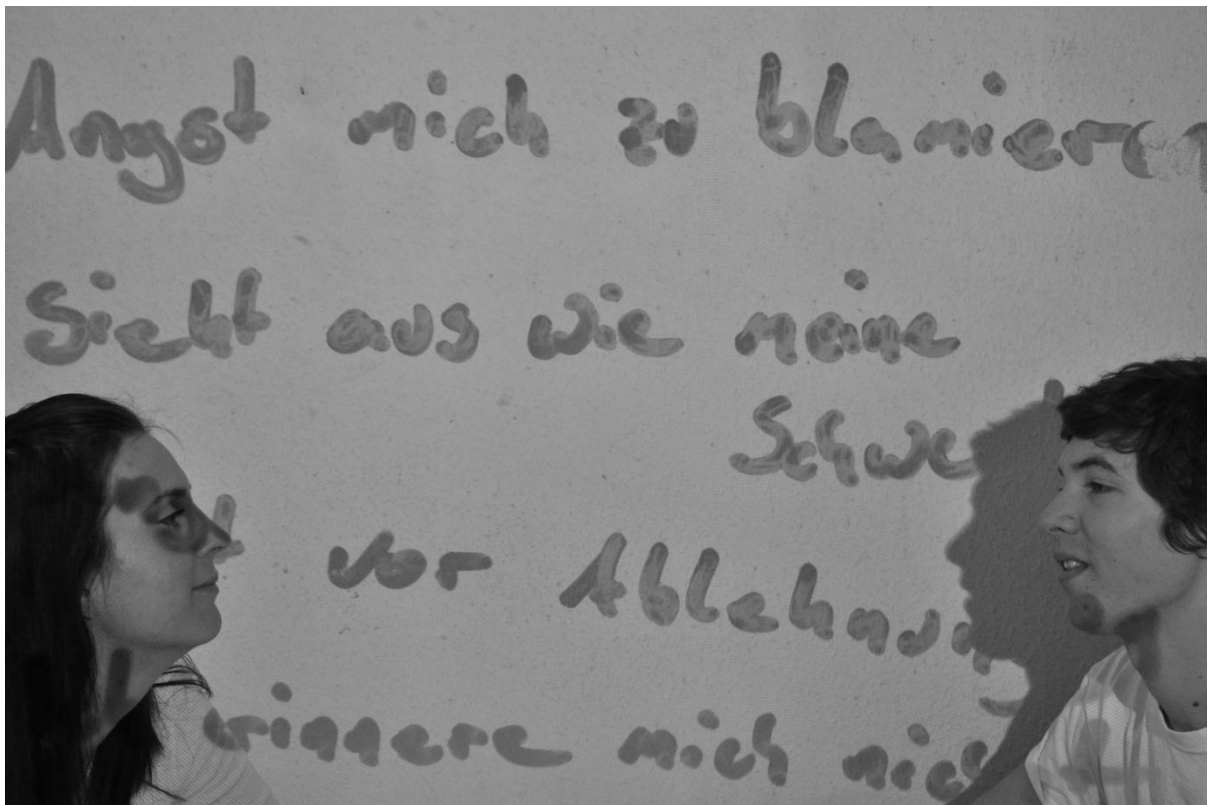 Angst mich zu blamieren
Sieht aus wie meine
Schwe
t vor Ablehnung
erinnere mich nic